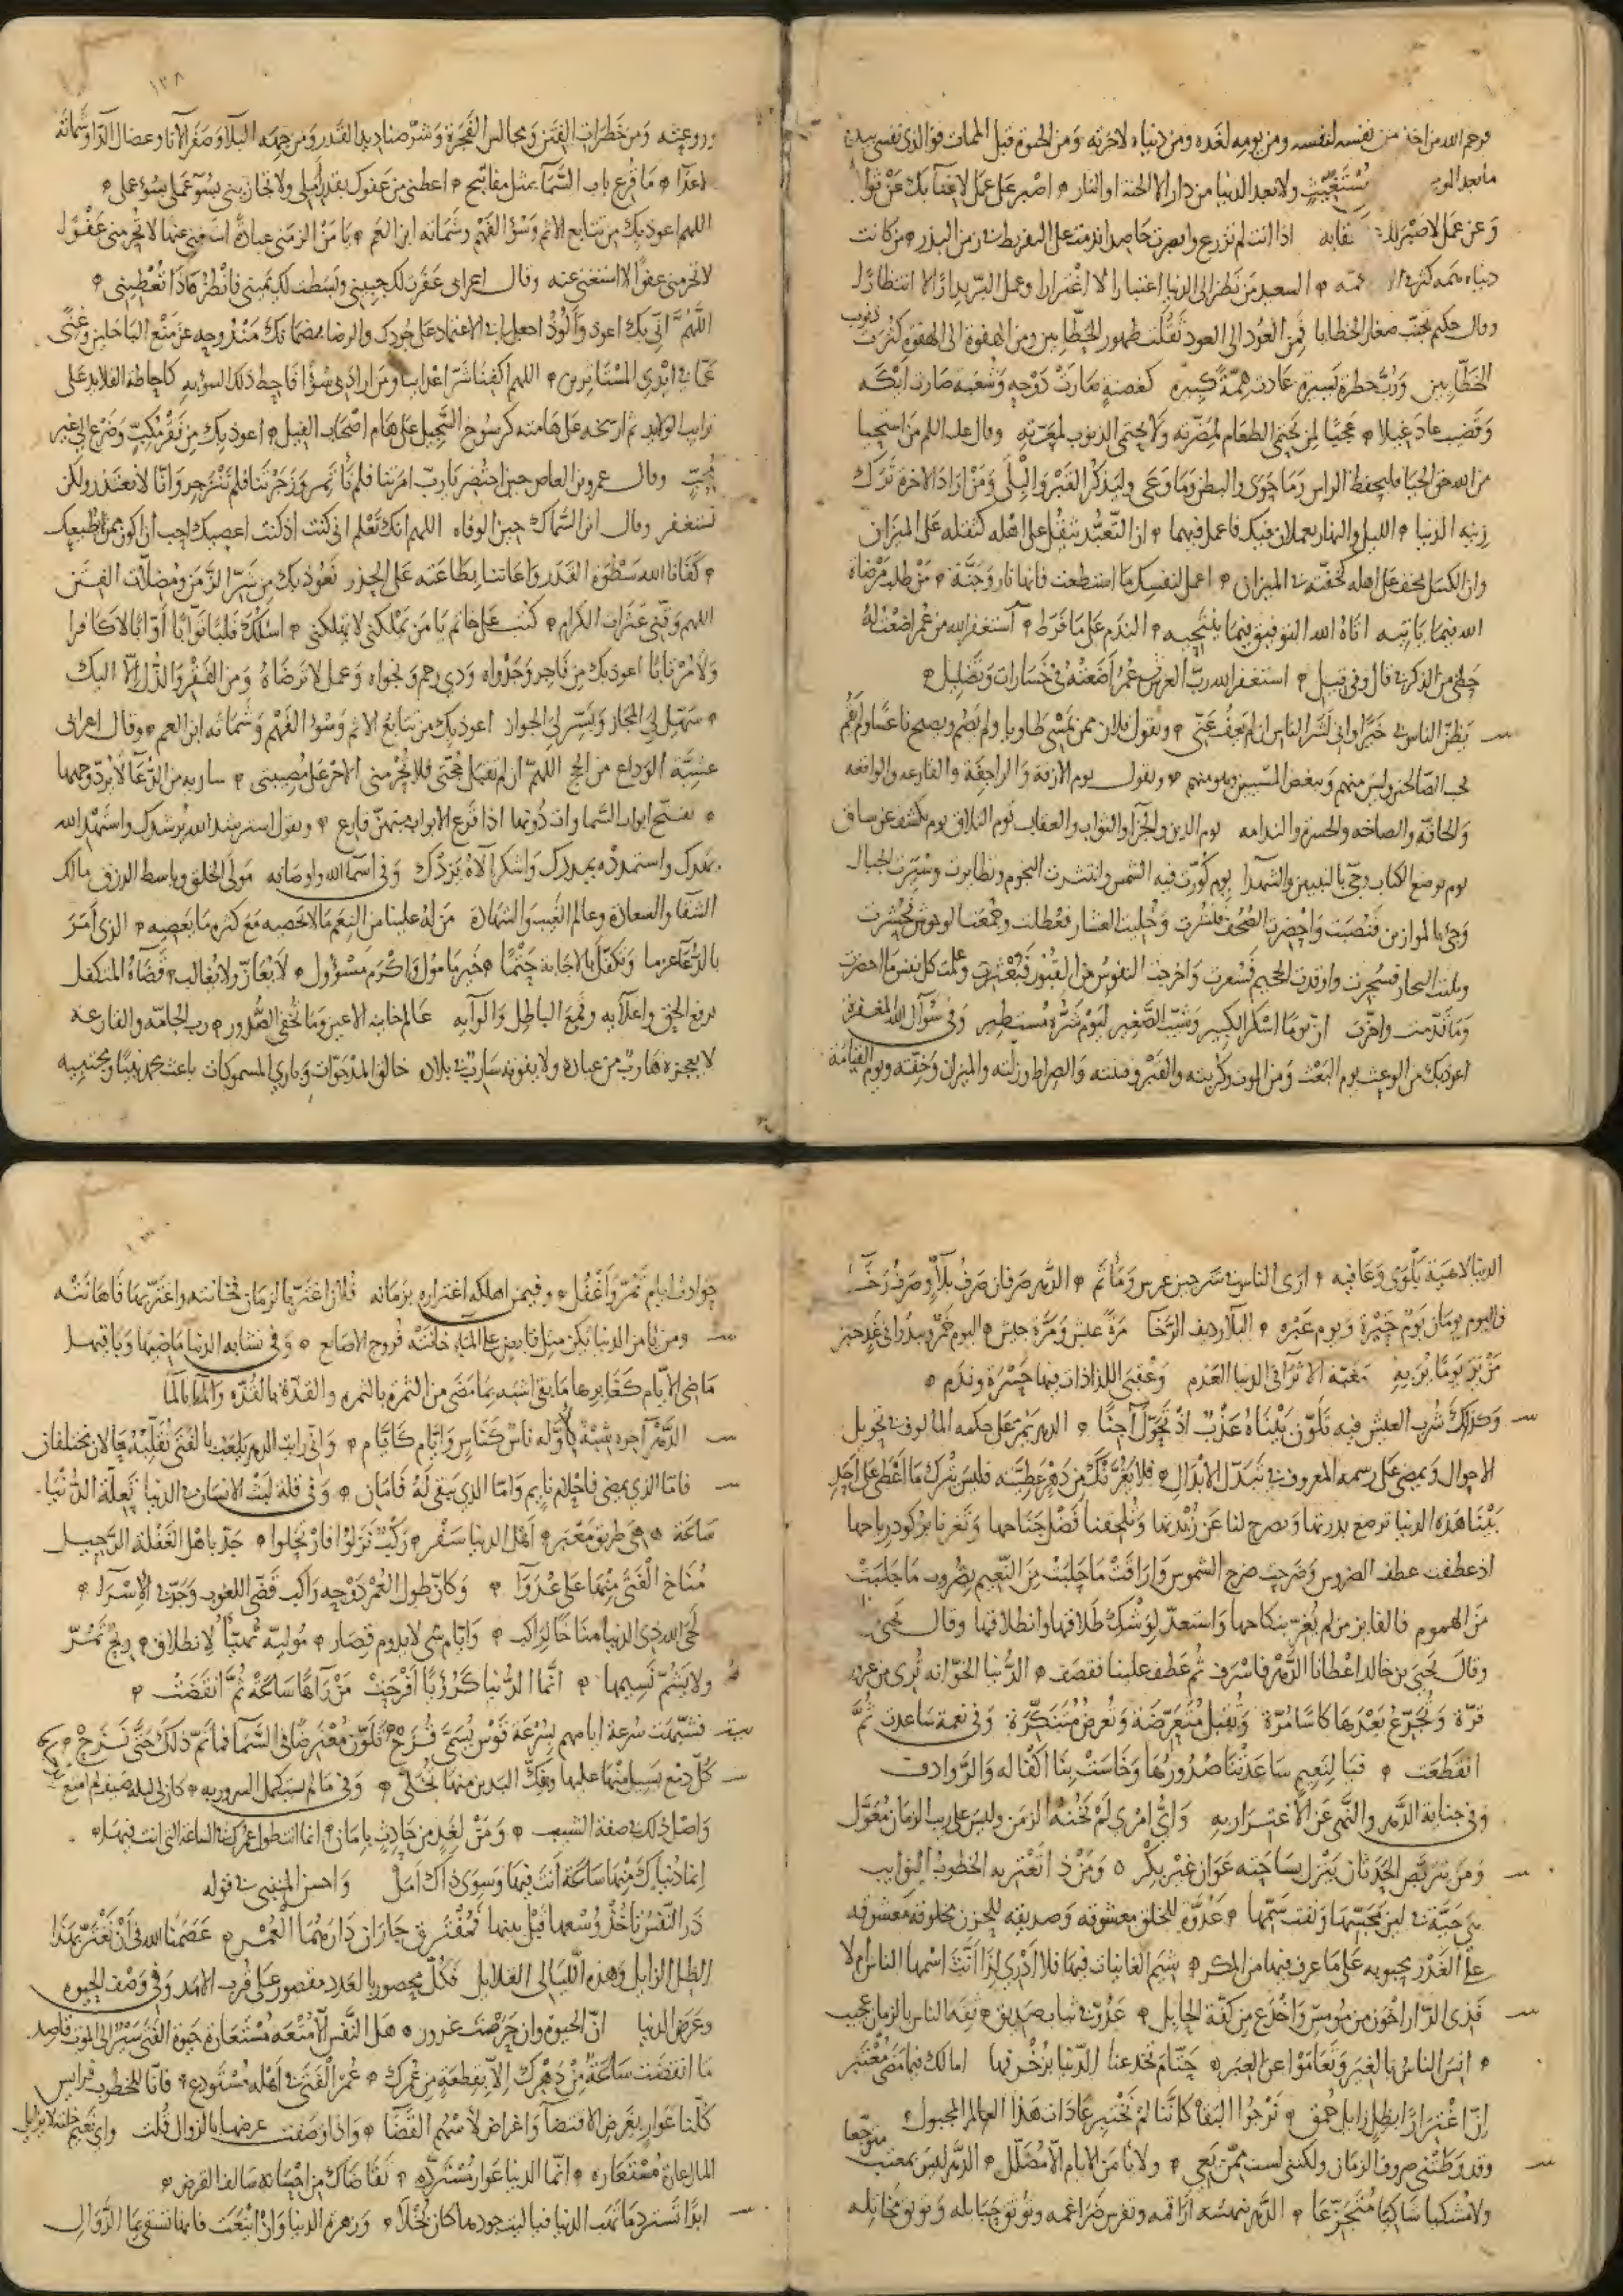 فرحم الله من اخذ من نفسه لنفسه ومن يومه لغده ومن دنياه لاخرته ومن الحيوة قبل الممات فوالذي نفسي بيده
ما بعد الموت مستعتب ولا بعد الدنيا من دار الا الجنة او النار اصبر على عمل لا غنا بك عن ثوابه
وعن عمل لا صبر لك عقابه اذا انت لم تزرع وابصرت حاصدا ندمت على التفريط في زمن البذر من كانت
دنياه همه كثر السعيد من نظر الى الدنيا اعتبارا لا اغترارا
وقال حكيم تجنب صغار الخطايا فمن العود الى العود ثقلت ظهور الخطابين ومن الهفوة الى الهفوة كثرت ذنوب
الخطايين ورب خطرة يسيرة عادت همة كبيرة كغصنة صارت دوحه وشعبة صارت ايكه
وقضيب عاد غيلا عجبا لمن يحتمي الطعام لمضرته ولا يحتمي الذنوب لمعرته وقال عليه السلم من استحيا
من الله حق الحيا فليحفظ الراس وما حوى والبطن وما وعى وليذكر القبر والبلى ومن اراد الاخرة ترك
زينه الدنيا الليل والنهار يعملان فيك فاعمل فيهما ان التعبد يثقل على اهله كثقله على الميزان
وان الكسل يخف على اهله كخفته في الميزان اعمل لنفسك ما استطعت فانها نار وجنة من طلب مرضاة
الله فيما ياتيه اتاه الله التوفيق فيما ينتحيه الندم على ما فرط استغفر الله من عمر اضعت له
حظي من الذكر في قال وفي قيل استغفر الله رب العرش من عمر اضعته في خسارات وتضليل
يظن الناس بي خيرا واني لشر الناس ان لم يعف عني ويقول فلان ممن يمسي طاويا ولم يصم ويصبح ناعسا ولم يقم
يحب الصالحين وليس منهم ويبغض المسيين وهو منهم ويقول يوم الازفة والراجفة والقارعه والواقعه
والحاقه والصاخه والحسرة والندامه يوم الدين والجزا والثواب والعقاب يوم التلاق يوم يكشف عن ساق
يوم يوضع الكتاب وجئ بالنبيين والشهدا يوم كورت فيه الشمس وانتثرت النجوم وتطايرت وسيرت الجبال
وجئ بالموازين فنصبت واحضرت الصحف فنشرت وخليت العشار فعطلت وجمعت الوحوش فحشرت
وملئت البحار فسجرت واوقدت الجحيم فسعرت واخرجت النفوس من القبور فبعثرت وعلمت كل نفس ما احضرت
وما قدمت واخرت ان يوما اسكر الكبير وشيب الصغير ليوم شره مستطير وفي سوال الله المغفرة
اعوذ بك من الوعيث يوم البعث ومن الموت وكربته والقبر وفتنته والصراط وزلته والميزان وخفته ويوم القيامة
١٣٨
وروعته ومن خطرات الفتن ومجالس الفجرة وشر صناديد القدر ومن جهد البلا وصفر الانا وعضال الدا وشماتة
الاعدا ما قرع باب السما بمثل مفاتيح اعطني من عفوك بقدر املي ولا تجازيني بسو عملي
اللهم اعوذ بك من تتابع الاثم وسو الفهم وشماته ابن العم يا من الزمني عبادة استغني عنها لا تحرمني عفوك
لا تحرمني عفوا لا استغني عنه وقال اعرابي عفرت لك جبيني وبسطت لك يميني فانظر ماذا تعطيني
اللهم اني بك اعوذ والوذ اجعل لي في الاعتماد على جودك والرضا بضمانك مندوحه عن منع الباخلين وغنى
عما في ايدي المستاثرين اللهم اكفنا شر اعرابي ومن ارادني سوا فاحط ذلك السؤ به كاحاطه القلايد على
ترايب الولايد ثم ارسخه على هامته كرسوخ السجيل على هام اصحاب الفيل اعوذ بك من فقر مكب وضرع الى غير
محب وقال عمرو بن العاص حين احتضر يا رب امرتنا فلم نأتمر وزجرتنا فلم ننزجر وانا لا نعتذر ولكن
نستغفر وقال ابن السماك حين الوفاه اللهم انك تعلم اني كنت اذ كنت اعصيك احب ان اكون ممن يطيعك
كفانا الله سطوة القدر واعاننا بطاعته على الحذر نعوذ بك من شر الزمن ومعضلات الفتن
اللهم وقني عثرات الكرام كتب على خاتم يا من يملكني لا تهلكني اسئلك قلبا توابا اوابا لا كافرا
ولا مرتابا اعوذ بك من فاجر وجدواه وذي رحم ونجواه وعمل لا ترضاه ومن الفقر والذل الا اليك
سهل لي المجاز ويسر لي الجواد اعوذ بك من تتابع الاثم وسؤ الفهم وشماته ابن العم وقال اعرابي
عشية الوداع من الحج اللهم ان لم تقبل حجتي فلا تحرمني الاجر على مصيبتي سارية من الدعا لا يرد وجهها
تفتح ابواب السماوات دونها اذا قرع الابواب منهن قارع ويقول استرشد الله يرشدك واستهد الله
يهدك واستمدده يمددك واشكر الاه يزدك وفي اسما الله واوصافه مولى الخلق وباسط الرزق مالك
الشقا والسعادة وعالم الغيب والشهادة من له علينا من النعم ما لا نحصيه مع كثرة ما نعصيه الذي امر
بالدعا عزما وتكفل بالاجابة حتما خير مامول واكرم مسؤول لا يعاز ولا يغالب قضاؤه المتكفل
برفع الحق واعلايه وقمع الباطل عالم خاينه الاعين وما تخفي الصدور رب الحامه والقارعه
لا يعجزه هارب من عباده ولا يفوته سارب في بلاده خالق المدحوات وباري المسموكات باعث محمد نبيا ومجتبيه
الدنيا لاهية بلوى وعافيه ارى الناس في شر حين عرس وماتم الدهر صرفان صرف بلا وصرف رخا
فاليوم يومان يوم حبرة ويوم عبره البلا رديف الرخا مرة عيش ومرة جيش اليوم خمر ويبدو في غد خبر
من بر يوما بر به بقية الاثرا في الدنيا العدم وعقبى اللذاذات فيها حسرة وندم
وكذلك شرب العيش فيه تلون بينا عذب اذ تحول آجنا الدهر يمر على حكمه المالوف في تحويل
الاحوال ويمضي على رسمه المعروف في تبديل الابدال فلا يغرنك من دهر عطيته فليس يترك ما اعطى على احد
بينا هذه الدنيا ترضع بدرتها وتصرح لنا عن زبدتها وتلحفنا فضل جناحها وتغرنا بركود رياحها
اذ عطفت عطف الضروس وضرحت ضرح الشموس واراقت ما حلبت من النعيم بضروب ما جلبت
من الهموم فالفايز من لم يغتر بنكاحها واستعد لوشك طلاقها وانطلاقها وقال يحيى
وقال يحيى بن خالد اعطانا الدهر فاسرف ثم عطف علينا فقصف الدنيا الخوانه تري من غرور
قرة وتجرع بعدها كاسا مرة وتقبل متعرضة وتعرض متنكرة وفي نعمة ساعدت ثم
انقطعت فيا لنعيم ساعدتنا صدورها وخاست بنا اكفاله والروادف
وفي جناية الدهر والنهي عن الاغترار به واي امرئ لم تخنه الزمن وليس على ريب الزمان معول
ومن يتربص الحدثان ينزل بساحته عوان غير بكر ومن ذا تغتر به الخطوب النوايب
هي حية في لين مجستها ونفث سمها عدوة للخلق معشوقه وصديقه للحزن مخلوقة معشوقه
على الغدر محبوبه على ما عرف فيها من المكر شيم الغانيات فيها فلا ادري لذا انث اسمها الناس ام لا
فذي الدار اخون من مومس واخدع من كفة الحابل عدو في ثياب صديق ثقه الناس بالزمان عجيب
انس الناس بالغير وتعاموا عن العبر حتام تخدعنا الدنيا بزخرفها اما لك فيما مضى معتبر
ان اغترارا بظل زايل حمق نرجوا البقا كاننا لم نختبر عادات هذا العالم المجبول
وقد وطئتني صروف الزمان ولكنني لست ممن يعي ولا يأمن الايام الا مضلل الدهر ليس بمعتب متوجعا
ولا مشكيا شاكيا متجرعا
حوادث ايام تمر واغفل وفيمن اهلكه اغتراره بزمانه فلان اغتر بالزمان فخانته واعتز بها فاهانته
ومن يأمن الدنيا يكن مثل قابض على الماء خانته فروج الاصابع وفي تشابه الدنيا ماضيها وباقيها
ماضي الايام كغابرها ما بقي اشبه بما مضى من الثمرة بالثمره والقذة بالقذه والماء بالما
الدهر آخره شبه باوله ناس كناس وايام كايام واني رايت الدهر يلعب بالفتى تقلبه حالان مختلفان
فاما الذي يمضي فاحلام نايم واما الذي يبقى له فامان وفي قلة لبث الانسان في الدنيا تعلة الدنيا
ساعة هي طريق معبر اهل الدنيا سفر وركب نزلوا فارتحلوا جد باهل الغفلة الرحيل
مناخ الفتى منها على عدوا وكان طول العمر دوحه راكب قضى اللغوب وجد في الاسرا
لحى الله ذي الدنيا مناخا لراكب وايام شي لا يدوم قصار موليه تهيأ لانطلاق ريح تمر
ولا يشم نسيمها انما الدنيا كرؤيا افرحت من رآها ساعة ثم انقضت
تشبهت سرعة ايامهم بسرعة قوس يسمى قزح تلون معترضا في السما فما تم ذلك حتى نزح
كل دمع يسيل منها عليها وبفك اليدين منها تخلى وفي ما لم يستكمل السرور به
واصل ذلك في صفة الشبيب ومن لغد من حادث بامان انما انت طول عمرك في الساعة التي انت فيها
انما دنياك منها ساعة انت فيها وسوى ذاك امل واحسن المتنبي في قوله
ذر النفس تأخذ وسعها قبل بينها فمفترق جاران دارهما العمر عصمنا الله في ان نغتر بهذا
الظل الزايل وهذه الليالي القلايل فكل محصور بالعدد مقصور على قرب الامد وفي وصف الحيوه
وعرض الدنيا ان الحيوة وان حرصت غرور هل النفس الا متعه مستعارة حيوة الفتى سير الى الموت قاصد
ما انقضت ساعة من دهرك الا بقطعة من عمرك عمر الفتى في اهله مستودع فانا للخطوب فرايس
كلنا عوار بعرض الاقتضا واغراض لاسهم القضا واذا وصفت عرضها بالزوال قلت واي نعيم خلته لا يزايل
المال عارة مستعاره انما الدنيا عوار مسترده تقاضاك من احسانه سالف القرض
ابدا تسترد ما تهب الدنيا فيا ليت جودها كان بخلا وزهرة الدنيا وان اينعت فانها تسقى بما الزوال